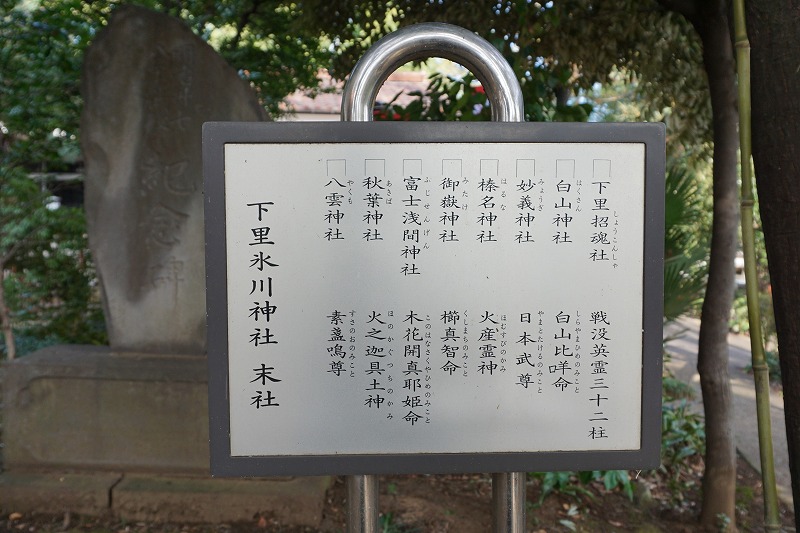 □下里招魂社 戦没英霊三十二柱
しょうこんしゃ
□白山神社 白山比咩命
はくさん しらやまひめのみこと
□妙義神社 日本武尊
みょうぎ やまとたけるのみこと
□榛名神社 火産霊神
はるな ほむすびのかみ
□御嶽神社 櫛真智命
みたけ くしまちのみこと
□富士浅間神社 木花開真耶姫命
ふじせんげん このはなさくやひめのみこと
□秋葉神社 火之迦具土神
あきば ほのかぐつちのかみ
□八雲神社 素盞嗚尊
やくも すさのおのみこと
下里氷川神社 末社
記念碑